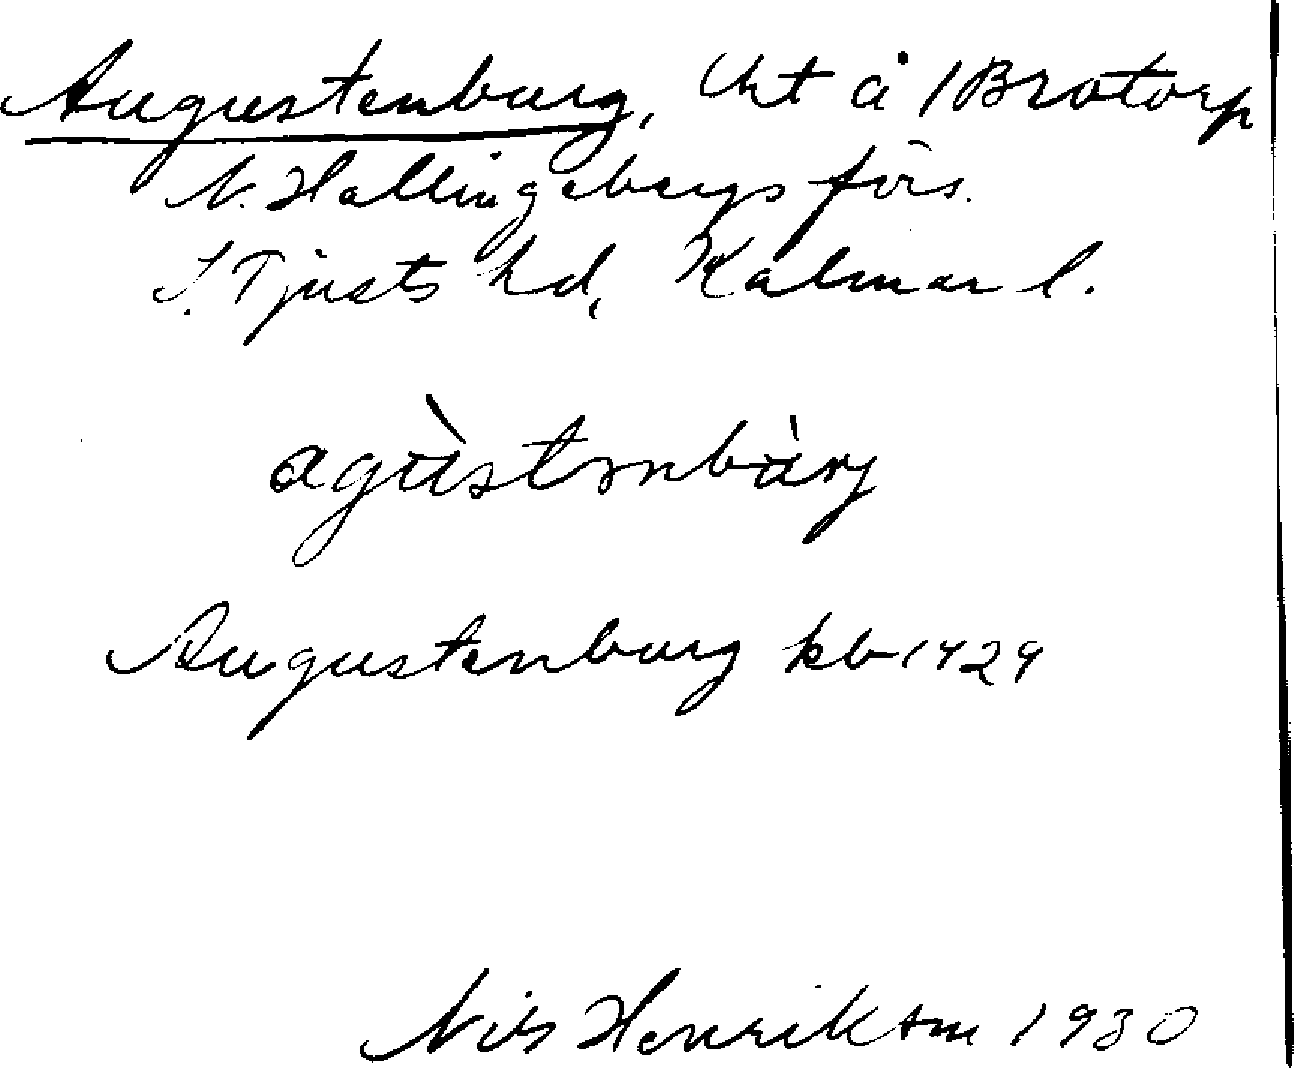 Augustenburg, lht å 1 Brotorp
V. Hallingebergs förs.
S. Tjusts hd, Kalmar l.
agùstonbàrj
Augustenburg kb 1929
Nils Henrikson 1930